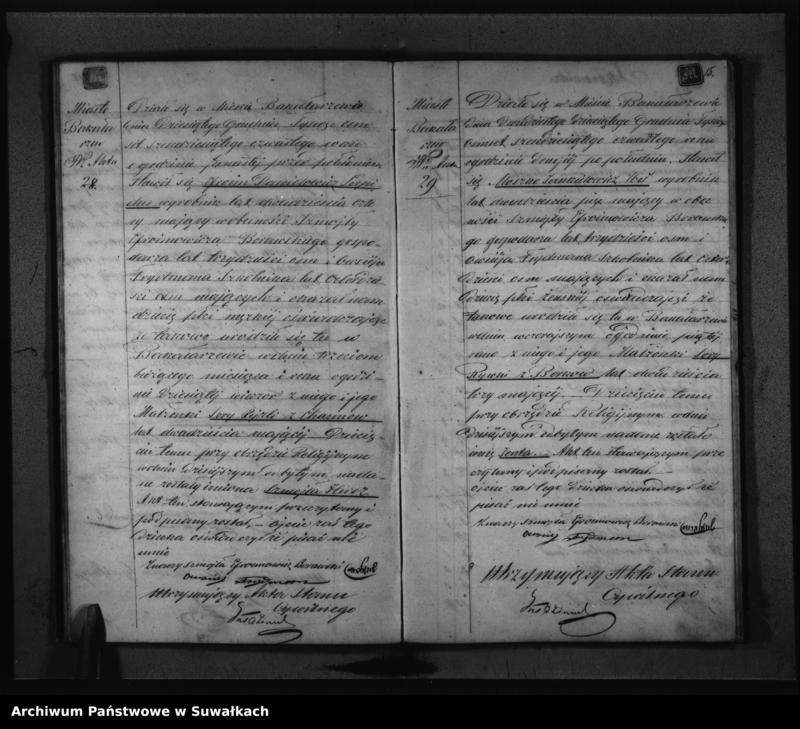 Miasto
Bakała
rzew
Nr Akta
28.
Działo się w Mieście Bakałarzewie
dnia Dziesiątego Grudnia Tysiąc ośm
set sześćdziesiątego czwartego roku
o godzinie przed południem
Stawił się Efroim Dawidowicz
wyrobnik lat dwadzieścia czte
ry mający w obecności Szmojły
Efroimowicza Borawskiego gospo-
darza lat trzydzieści ośm i Owsieja
Frydmana Szkolnika lat czterdzie
ści ośm mających i okazał nam
dziecię płci męzkiej oświadczając
że takowe urodziło się tu w
Bakałarzewie w dniu trzecim
bieżącego miesiąca i roku o godzi-
nie Dziesiątej wieczór z niego i jego
Małżonki Sory Pejrli z
lat dwadzieścia mającej Dziecię-
ciu temu przy obrzędzie Religijnym
w dniu dzisiejszym odbytym nada-
ne zostały imiona Szmojło Hirsz
Akt ten stawającym przeczytany i
podpisany został, – ojciec zaś tego
Dziecka oświadczył że pisać nie
umie
Znaczy Szmojło Efroimowicz Borawski
Frydman
Utrzymujący Akta Stanu
Cywilnego
15.
Miasto
Bakała
rzew
Nr Akta
29
Działo się w Mieście Bakałarzewie
Dnia Dwudziestego Dziewiątego Grudnia Tysiąc
ośmset sześćdziesiątego czwartego roku
o godzinie po południu, Stawił
się Moszko Jankielowicz wyrobnik
lat dwadzieścia pięć mający w obec
ności Szmojły Efroimowicza Borawskie
go gospodarza lat trzydzieści ośm i
Owsieja Frydmana Szkolnika lat czter
dzieści ośm mających i okazał nam
dziecię płci żeńskiej oświadczając że
takowe urodziło się tu w Bakałarzewie
w dniu wczorajszym o godzinie piątej
rano z niego i jego Małżonki Sory
Rywki z lat dwadzieścia
trzy mającej – Dziecięciu temu
przy obrzędzie Religijnym w dniu
dzisiejszym odbytym nadane zostało
imię Akt ten stawającym prze
czytany i podpisany został. –
ojciec zaś tego Dziecka oświadczył że
pisać nie umie
Znaczy Szmojło Efroimowicz Borawski
Frydman
Utrzymujący Akta Stanu
Cywilnego
Archiwum Państwowe w Suwałkach